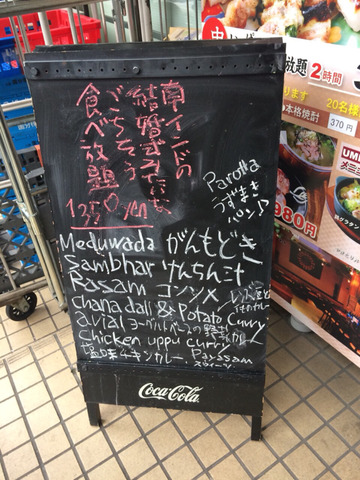 南インドの
結婚式みたいな
ごちそう
食べ放題
1350yen
Parotta
うずまき
パン♪
Meduwada がんもどき
Sambhar けんちん汁
Rasam コンソメ
chana dall & Potato Curry
avial ヨーグルトベースの野菜
Chicken uppu curry
塩味チキンカレー Payasam
スウィーツ
Coca-Cola
放題 2時間
20名様
本格焼酎
370円
980円